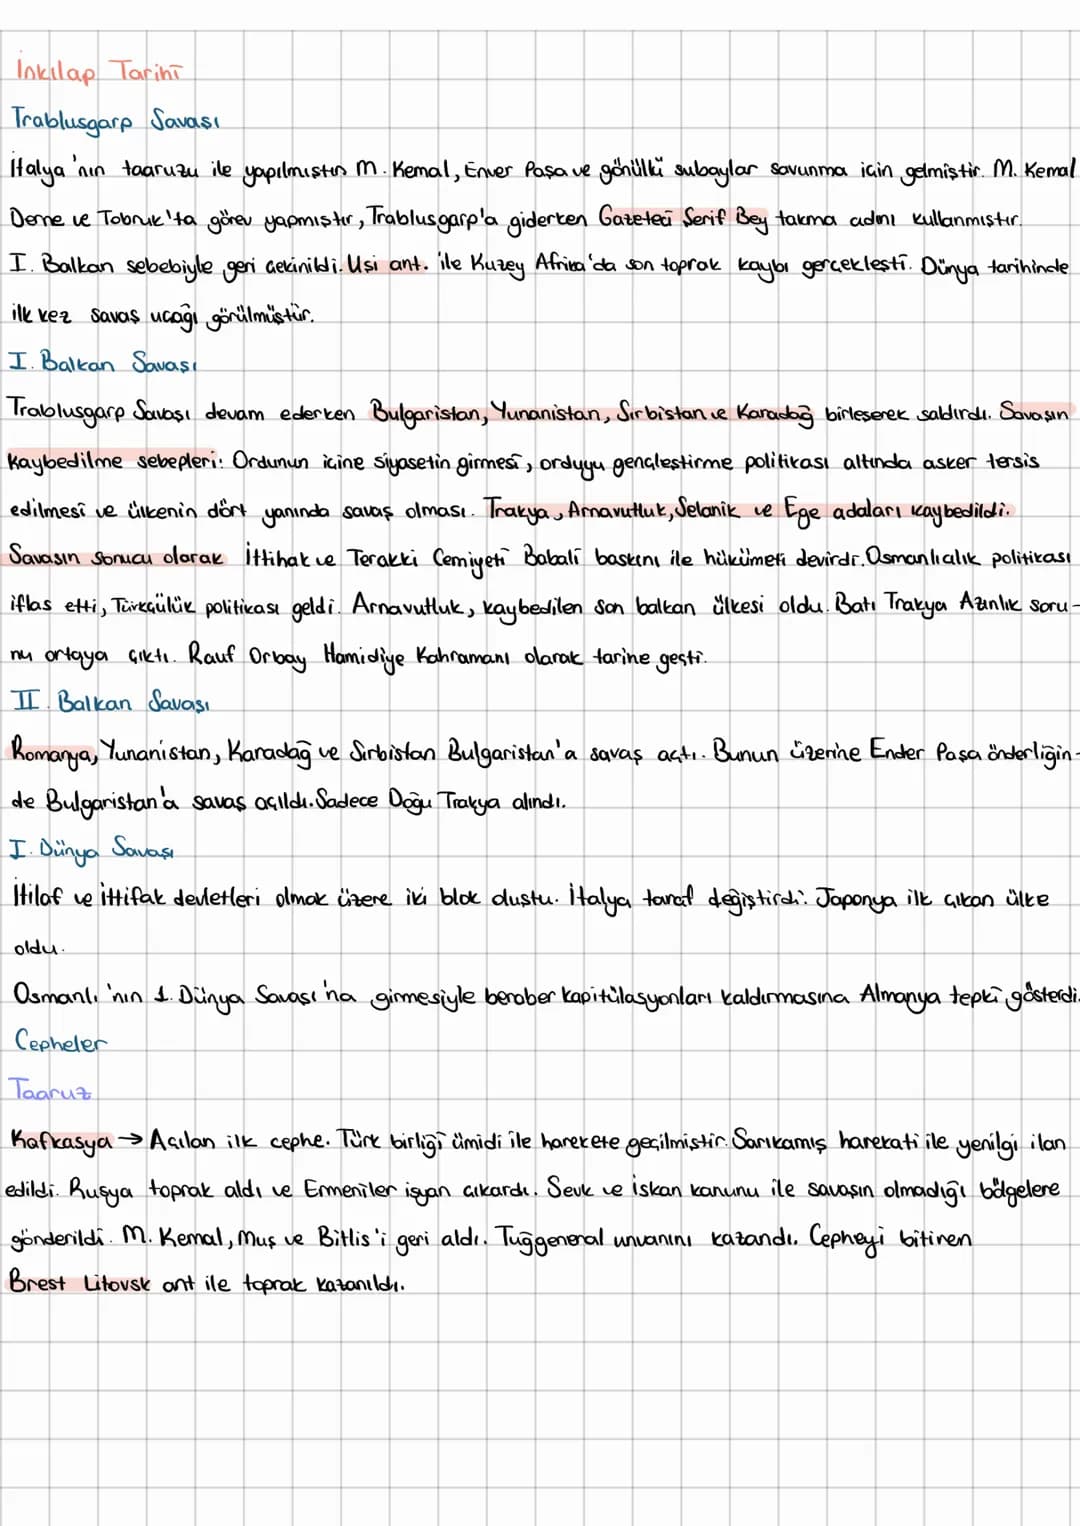 İnkılap Tarihi
Trablusgarp Savaşı
İtalya'nın taaruzu ile yapılmıştır. M. Kemal, Enver Paşa ve gönüllü subaylar savunma için gelmiştir. M. Kemal
Derne ve Tobruk'ta görev yapmıştır, Trablusgarp'a giderken Gazeteci Şerif Bey takma adını kullanmıştır.
I. Balkan sebebiyle geri çekinildi. Uşi ant. ile Kuzey Afrika'da son toprak kaybı gerçekleşti. Dünya tarihinde
ilk kez savaş uçağı görülmüştür.
I. Balkan Savaşı
Trablusgarp Savaşı devam ederken Bulgaristan, Yunanistan, Sırbistan ve Karadağ birleşerek saldırdı. Savaşın
kaybedilme sebepleri: Ordunun içine siyasetin girmesi, orduyu gençleştirme politikası altında asker tersis
edilmesi ve ülkenin dört yanında savaş olması. Trakya, Arnavutluk, Selanik ve Ege adaları kaybedildi.
Savaşın sonucu olarak İttihak ve Terakki Cemiyeti Babali baskını ile hükümeti devirdi. Osmanlıcalık politikası
iflas etti, Türkçülük politikası geldi. Arnavutluk, kaybedilen son balkan ülkesi oldu. Batı Trakya Azınlık soru-
nu ortaya çıktı. Rauf Orbay Hamidiye Kahramanı olarak tarihe geçti.
II. Balkan Savaşı
Romanya, Yunanistan, Karadağ ve Sırbistan Bulgaristan'a savaş açtı. Bunun üzerine Ender Paşa önderliğin-
de Bulgaristan'a savaş açıldı. Sadece Doğu Trakya alındı.
I. Dünya Savaşı
İtilaf ve İttifak devletleri olmak üzere iki blok oluştu. İtalya taraf değiştirdi. Japonya ilk çıkan ülke
oldu.
Osmanlı'nın 1. Dünya Savaşı'na girmesiyle beraber kapitülasyonları kaldırmasına Almanya tepki gösterdi.
Cepheler
Taaruz
Kafkasya → Açılan ilk cephe. Türk birliği ümidi ile harekete geçilmiştir. Sarıkamış harekati ile yenilgi ilan
edildi. Rusya toprak aldı ve Ermeniler isyan çıkardı. Sevk ve İskan kanunu ile savaşın olmadığı bölgelere
gönderildi. M. Kemal, Muş ve Bitlis'i geri aldı. Tuğgeneral unvanını kazandı. Cepheyi bitiren
Brest Litovsk ant ile toprak kazanıldı.